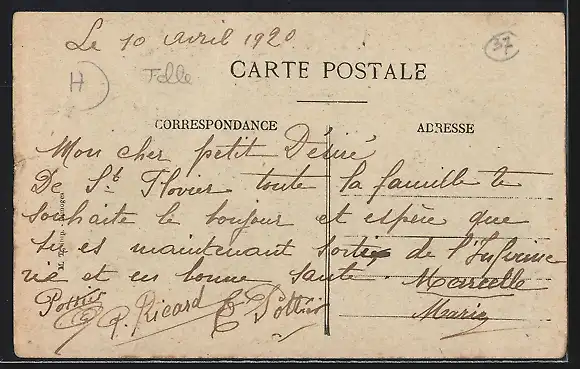 Le 10 avril 1920
37
H
CARTE POSTALE
CORRESPONDANCE
ADRESSE
Mon cher petit Désiré
De St Flovier toute la famille te
souhaite le bonjour et espère que
tu es maintenant sortie de l'Infirme
rie et en bonne santé. Marcelle
Pottier P. Ricard E Pottier Marie